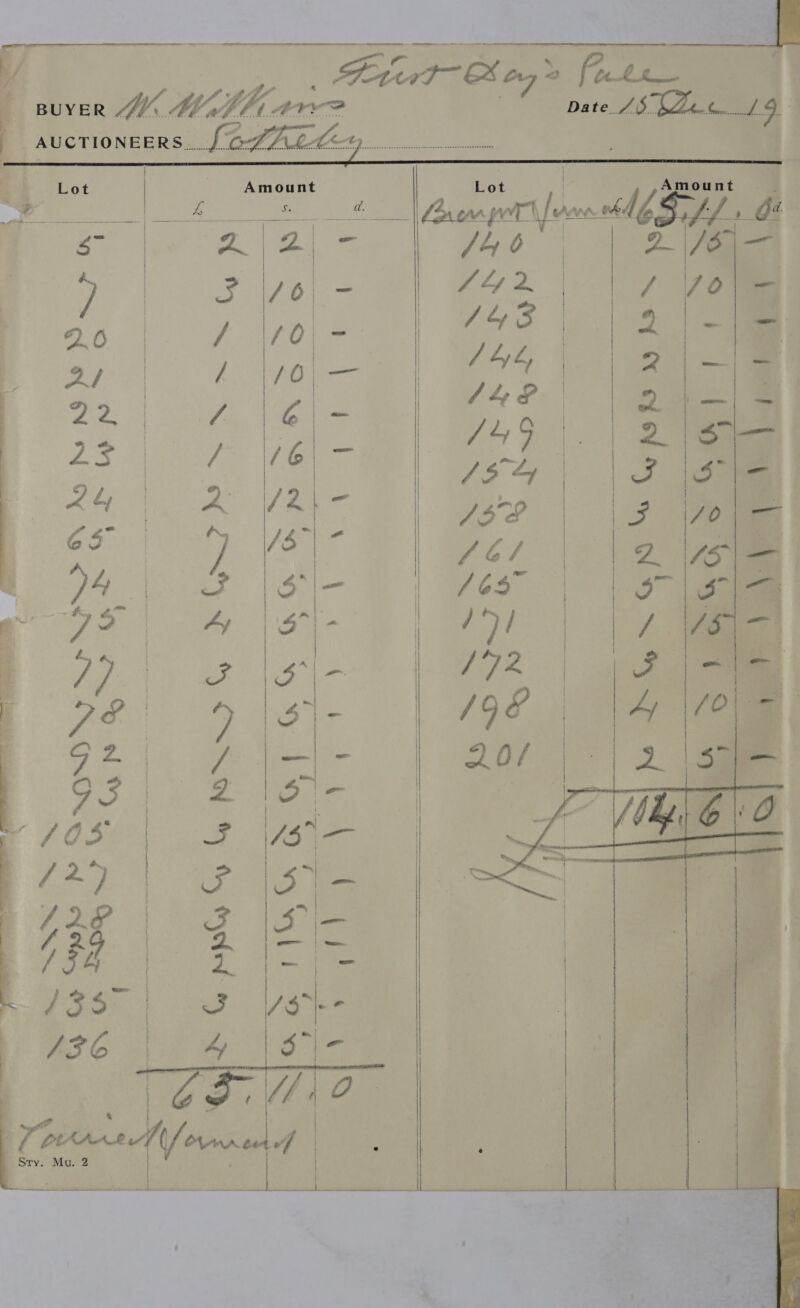 First Day's Sale
BUYER W. Williams Date 15 Dec 19
AUCTIONEERS Sotheby
Lot Amount Lot Amount
£ s. d. Brought forward 65. 11. 0d
5 2 2 - 140 2 15 -
7 3 10 - 142 1 10 -
20 1 10 - 143 2 - -
21 1 10 - 144 2 - -
22 1 6 - 148 2 - -
23 1 16 - 149 2 5 -
24 2 12 - 154 3 5 -
65 7 15 - 158 3 10 -
74 3 5 - 161 2 15 -
75 4 5 - 165 5 5 -
77 3 5 - 171 1 15 -
78 7 5 - 172 3 - -
92 1 - - 198 4 10 -
93 2 5 - 201 2 5 -
105 3 15 - £ 104. 6. 0
127 3 5 -
128 3 5 -
129 2 - -
134 2 - -
135 3 15 -
136 4 5 -
65. 11. 0
forward
Sty. Mu. 2